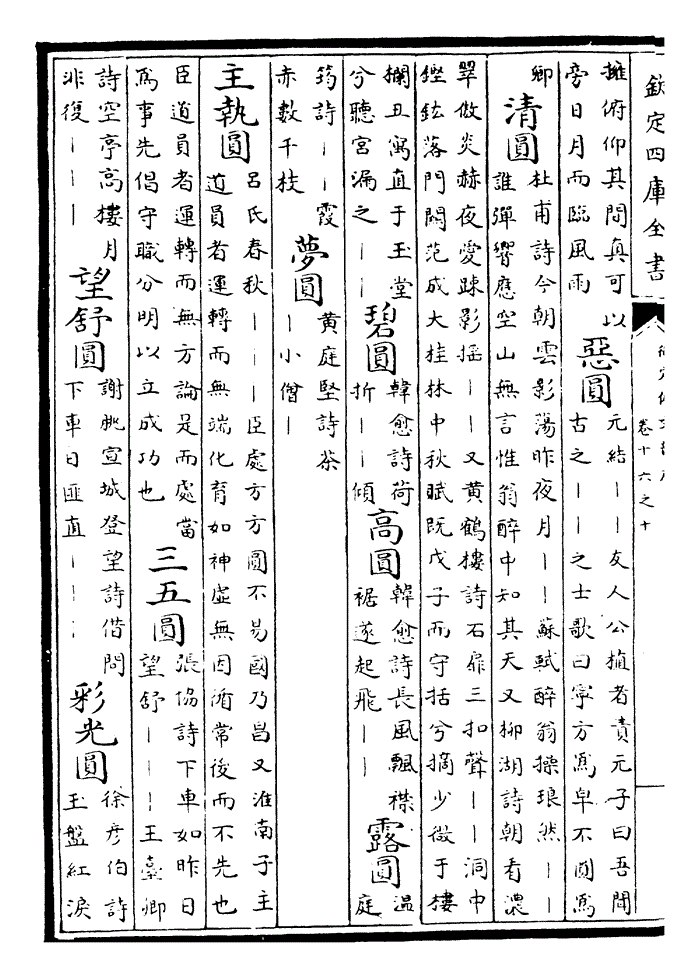 欽定四庫全書
卷十六之十
擁俯仰其間真可以
旁日月而臨風雨
惡圓
元結丨丨友人公植者責元子曰吾聞
古之丨丨之士歌曰寧方為皁不圓為
卿
清圓
杜甫詩今朝雲影蕩昨夜月丨丨蘇軾醉翁操琅然丨丨
誰彈響應空山無言惟翁醉中知其天又柳湖詩朝看濃
翠傲炎赫夜愛踈影揺丨丨又黄鶴樓詩石扉三扣聲丨丨洞中
鏗鈜落門關范成大桂林中秋賦既戊子而守括兮摘少微于樓
欄丑寓直于玉堂
兮聽宮漏之丨丨
碧圓
韓愈詩荷
折丨丨傾
高圓
韓愈詩長風飄襟
裾遂起飛丨丨
露圓
温
庭
筠詩丨丨霞
赤數千枝
夢圓
黄庭堅詩茶
丨小僧丨
主執圓
呂氏春秋丨丨丨臣處方方圓不易國乃昌又淮南子主
道員者運轉而無端化育如神虛無因循常後而不先也
臣道員者運轉而無方論是而處當
為事先倡守職分明以立成功也
三五圓
張協詩下車如昨日
望舒丨丨丨王臺卿
詩空亭高樓月
非復丨丨丨
望舒圓
謝朓宣城登望詩借問
下車日匪直丨丨丨
彩光圓
徐彦伯詩
玉盤紅淚